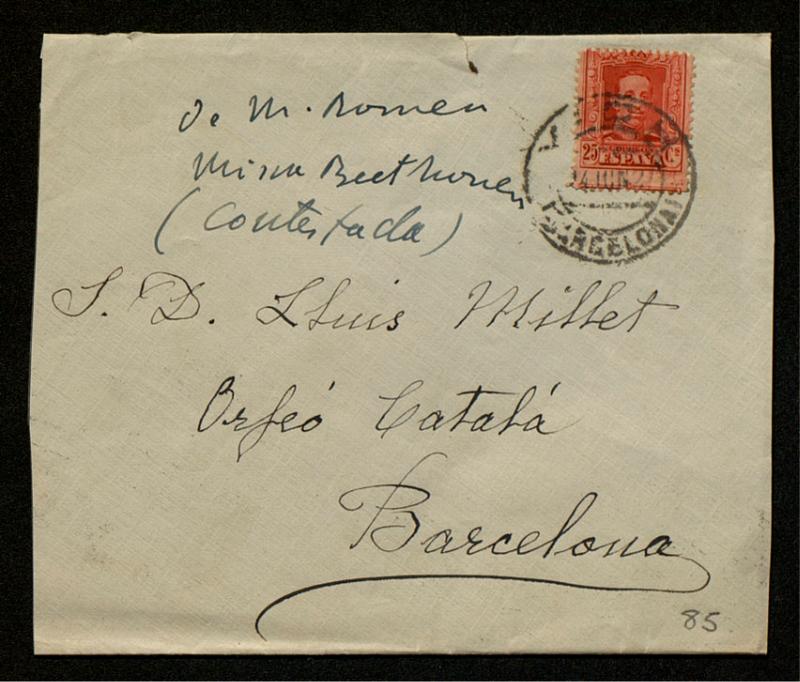 de M. Romeu
Missa Beethoven
(Contestada)
25 Cs
ESPAÑA
14 JUN 27
(BARCELONA)
S. D. Lluis Millet
Orfeó Catalá
Barcelona
85